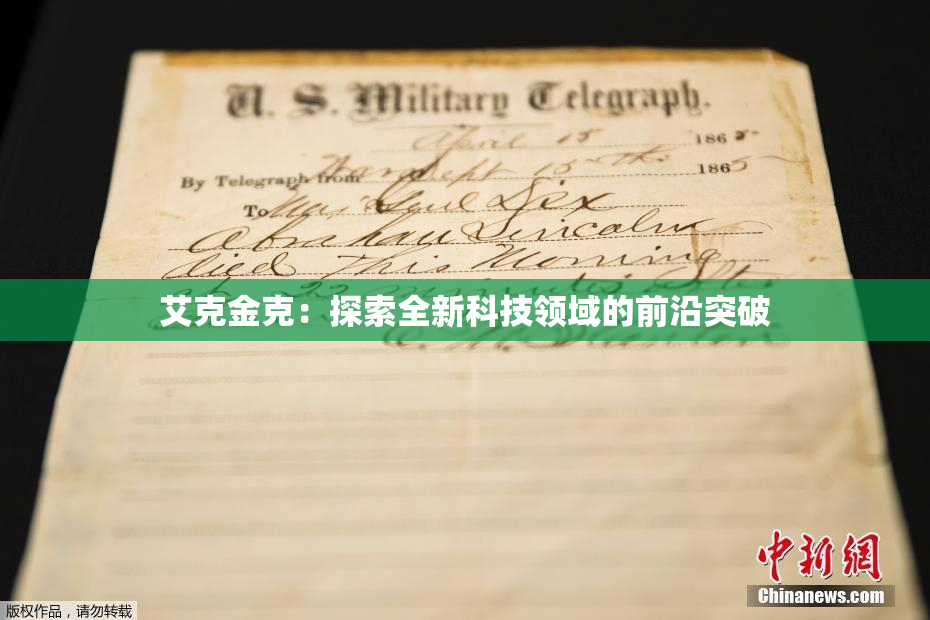 U. S. Military Telegraph.
April 15 1865
By Telegraph from War Dept 15th 1865
To Maj Genl Dix
Abraham Lincoln
died This Morning
at 22 minutes after
艾克金克：探索全新科技领域的前沿突破
版权作品，请勿转载
中新网
Chinanews.com